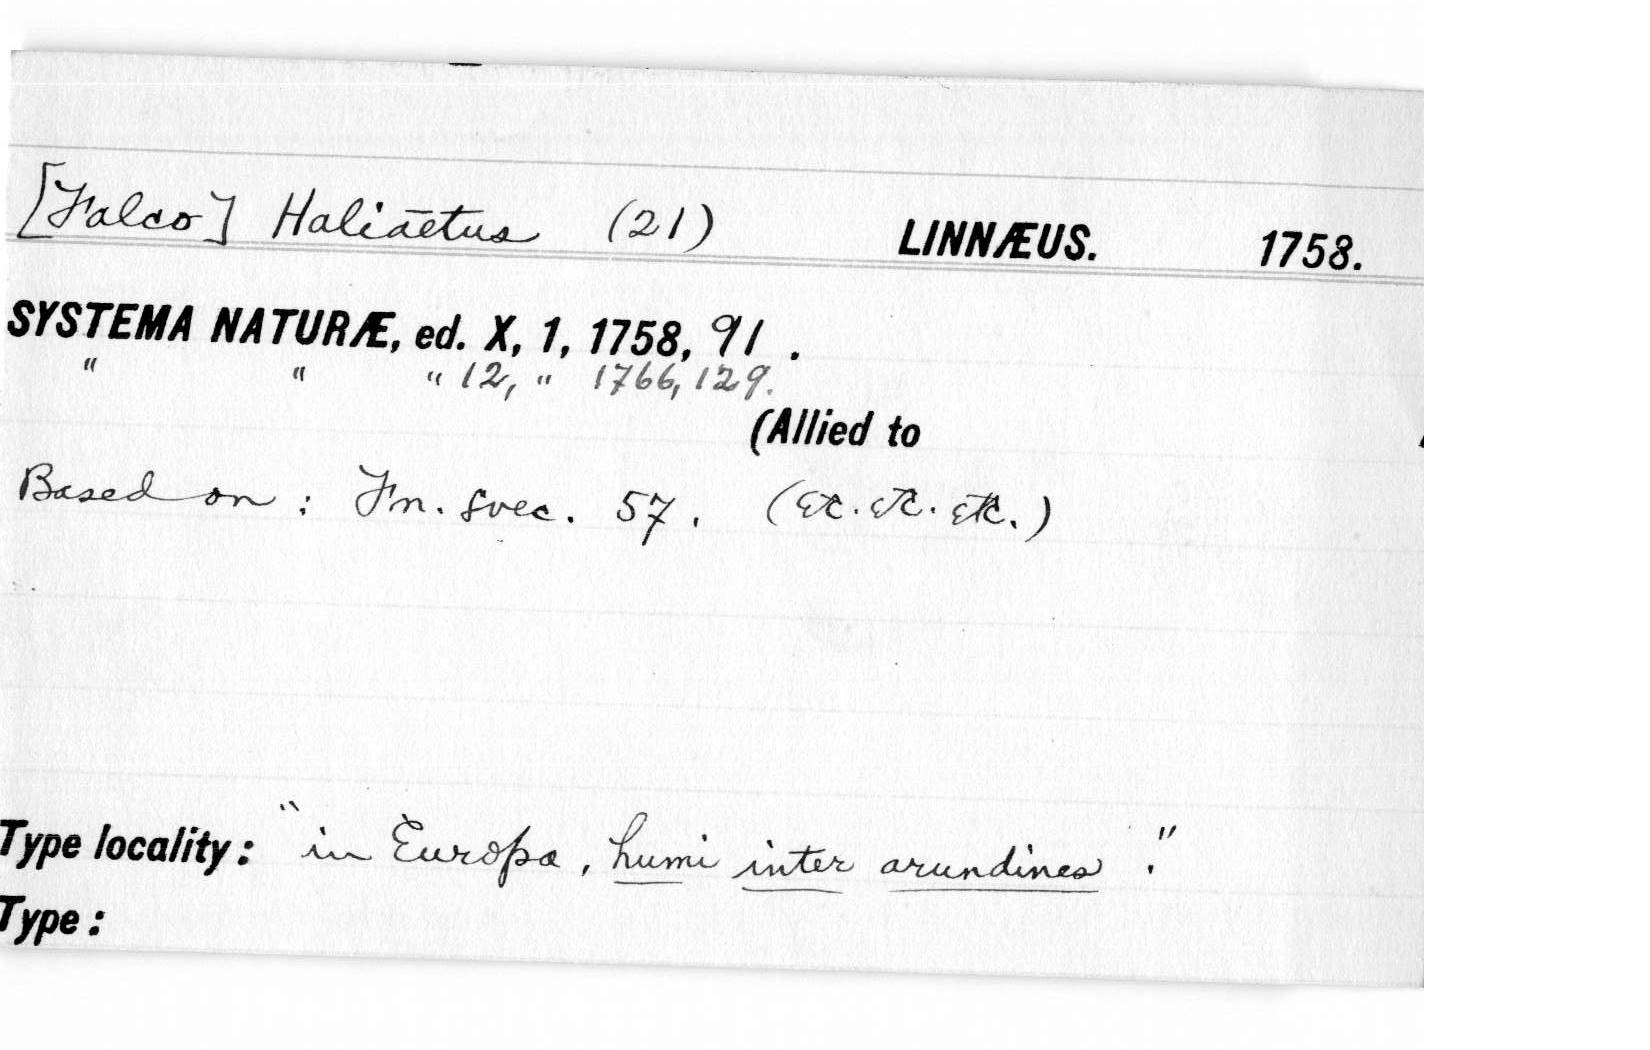 [Falco] Haliāetus (21) LINNÆUS. 1758.
SYSTEMA NATURÆ, ed. X, 1, 1758, 91.
" " " 12, " 1766, 129.
(Allied to
Based on : Fn. Svec. 57. (etc. etc. etc.)
Type locality: "in Europa, humi inter arundines."
Type: